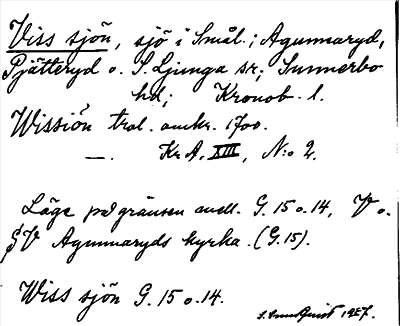 Viss sjön, sjö i Smål.; Agunnaryd,
Pjätteryd o. S. Ljunga sr; Sunnerbo
hd; Kronob. l.
Wissiön trol. omkr. 1700.
—. Kr. A. XIII, N:o 2.
Läge på gränsen mell. G. 15 o. 14, V o.
SV Agunnaryds kyrka. (G. 15).
Wiss sjön G. 15 o. 14.
1927.